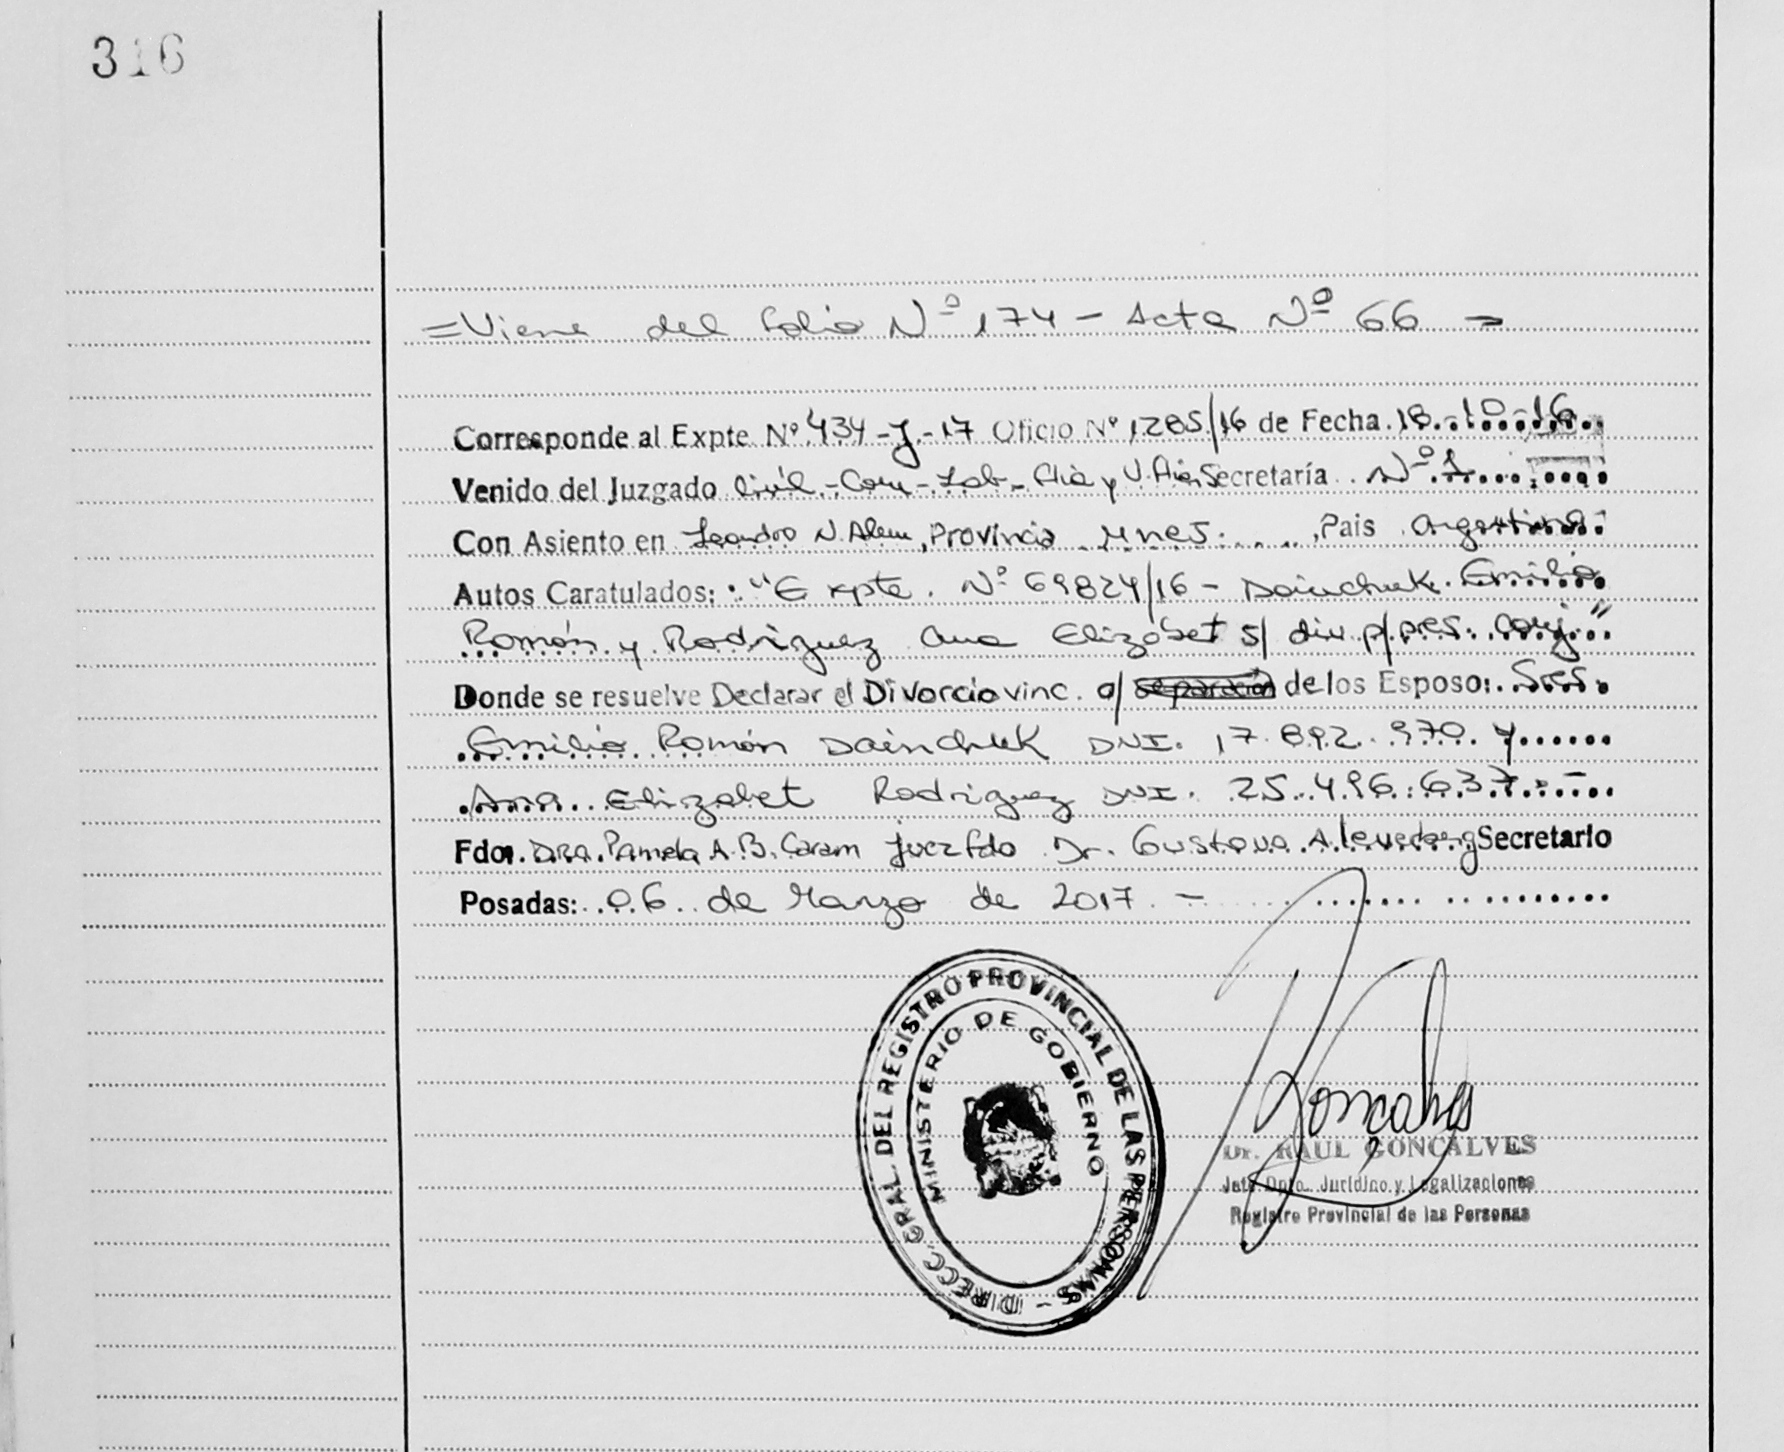 316
= Viene del folio Nº 174 - Acta Nº 66 =
Corresponde al Expte Nº 434-J-17 Oficio Nº 1285/16 de Fecha 18-10-16
Venido del Juzgado Civil-Com-Lab-Flia y V. Flia, Secretaría Nº 1
Con Asiento en Leandro N. Alem, Provincia Mnes. , Pais Argentina
Autos Caratulados: "Expte. Nº 69824/16 - Dainchuk Emilio
Román y Rodriguez Ana Elizabet s/ div p/pres. conj"
Donde se resuelve Declarar el Divorcio vinc. o/ separación de los Esposo: Sres.
Emilio Román Dainchuk DNI. 17.892.970 y
Ana Elizabet Rodriguez DNI. 25.496.637.-
Fdo. Dra. Pamela A.B. Caram juez fdo Dr. Gustavo A. Secretario
Posadas: 06 de Marzo de 2017 -
DIRECC. GRAL. DEL REGISTRO PROVINCIAL DE LAS PERSONAS -
MINISTERIO DE GOBIERNO
Goncalves
Dr. RAUL GONCALVES
Jefe Dpto. Jurídico y Legalizaciones
Registro Provincial de las Personas